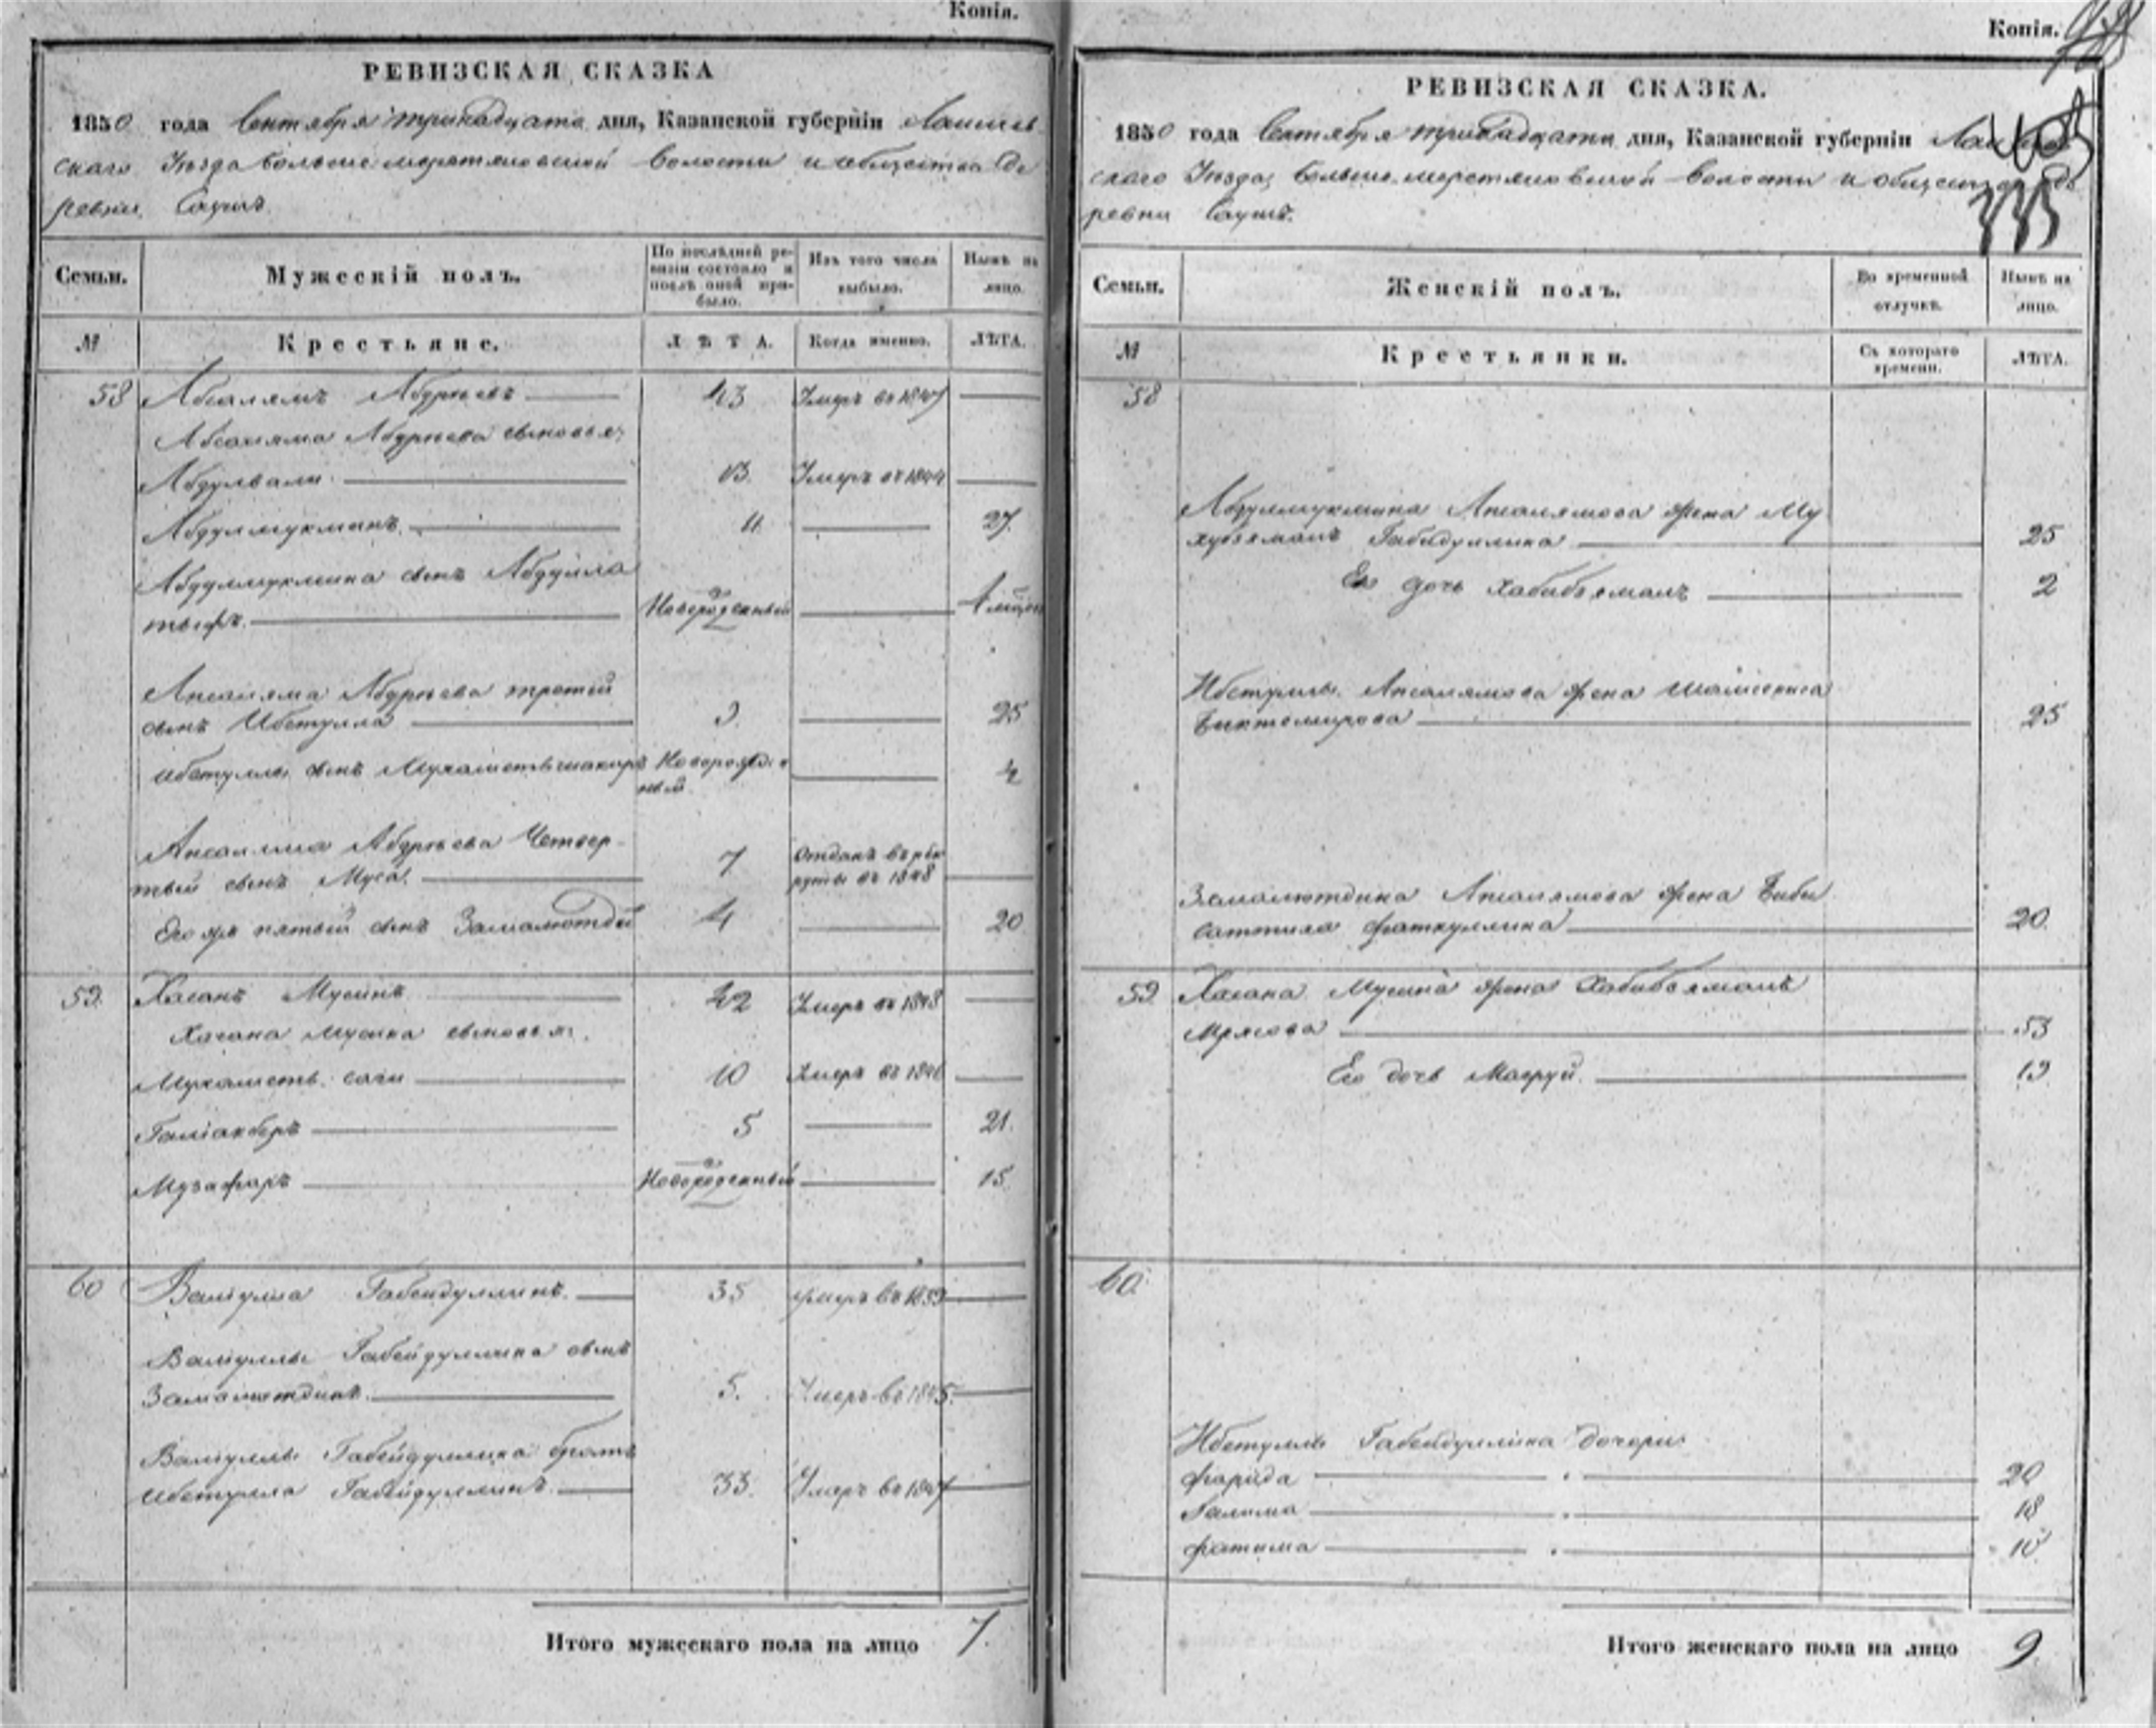 Копія.
РЕВИЗСКАЯ СКАЗКА
1850 года Сентября тринадцатаго дня, Казанской губерніи Лаишев
скаго Уѣзда Больше меретяковской Волости и общества де
ревни Саушъ
Семьи.
Мужескій полъ.
По послѣдней ре-
визіи состояло и
послѣ оной при-
было.
Изъ того числа
выбыло.
Нынѣ на
лицо.
№
Крестьяне.
ЛѢТА.
Когда именно.
ЛѢТА.
58 Абсалямъ Абдреевъ 43 Умеръ въ 1847
Абсаляма Абдреева сыновья:
Абдулвали 13. Умеръ въ 1844
Абдулмукминъ 11. 27.
Абдулмукмина сынъ Абдулла
тыфъ. Новорожденный
Апсаляма Абдреева третий
сынъ Ибетулла 9. 25
Ибетуллы сынъ Мухаметьшакиръ Новорожден
ный 4
Апсаляма Абдреева Четвер-
тый сынъ Муса. 7 Отданъ въ рек
руты въ 1848
Его же пятый сынъ 4 20
59. Хасанъ Мусинъ 42 Умеръ въ 1848
Хасана Мусина сыновья:
Мухаметь сади 10 Умеръ въ 1846
Галіакберъ 5 21.
Музафаръ Новорожденный 15.
60 Валіулла Габейдуллинъ. 35 умеръ въ 1839
Валіуллы Габейдуллина сынъ
Замалютдинъ. 5. Умеръ въ 1845.
Валіуллы Габейдуллина братъ
Ибетулла Габейдуллинъ. 33. Умеръ въ 1847
Итого мужескаго пола на лицо 7.
Копія.
РЕВИЗСКАЯ СКАЗКА.
1850 года Сентября тринадцатаго дня, Казанской губерніи
скаго Уѣзда, Больше меретяковской Волости и общества де
ревни Саушъ.
335
Семьи.
Женскій полъ.
Во временной
отлучкѣ.
Нынѣ на
лицо.
№
Крестьянки.
Съ котораго
времени.
ЛѢТА.
58
Абдулмукмина Апсалямова жена Му
Габидуллина 25
Его дочь Хабибзямалъ 2
Ибетуллы Апсалямова жена
Биктемирова 25
Замалютдина Апсалямова жена Биби
Фаткуллина 20.
59. Хасана Мусина жена Хабибзямалъ
Мрясова 53
Его дочь Магруй. 19
60.
Ибетуллы Габейдуллина дочери
Фарида 20
Галима 18
Фатима 10
Итого женскаго пола на лицо 9.